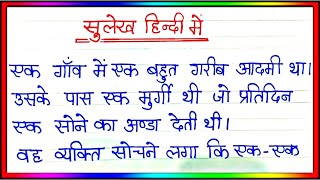 सुलेख हिन्दी में
एक गाँव में एक बहुत गरीब आदमी था।
उसके पास एक मुर्गी थी जो प्रतिदिन
एक सोने का अण्डा देती थी।
वह व्यक्ति सोचने लगा कि एक-एक